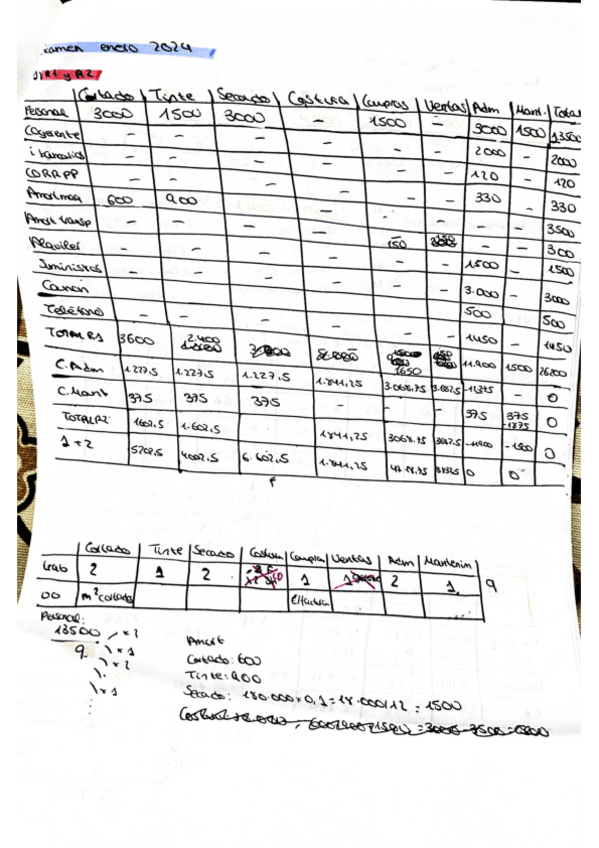 examen enero 2024
R1 y R2
Cortado Tinte Secado Costura Compras Ventas Adm Mant. Total
Personal 3000 1500 3000 - 1500 - 3000 1500 13500
Cogerente - - - - - - 2000 - 2000
- - - - - - 120 - 120
CORR PP - - - - - - 330 - 330
Amort maq 600 900 - - - - - - 3500
Amort transp - - - - 150 150 - - 300
Alquiler - - - - - - 1500 - 1500
Suministros - - - - - - 3.000 - 3000
Canon - - - - - - 500 - 500
Teléfono - - - - - - 1450 - 1450
TOTAL R1 3600 2.400 1650 11.900 1500 26200
C. Adm 1.227,5 1.227,5 1.227,5 1.841,25 3.068,75 0
C. Mant 375 375 375 - - - 375 0
TOTAL R2 1602,5 1.602,5 1841,25 3068,75 -11900 -1500 0
1+2 5202,5 4002,5 6.602,5 1.841,25 0 0
Cortado Tinte Secado Costura Compras Ventas Adm Mantenim
trab 2 1 2 1 2 1 9
UO m² cortados
Personal:
13500 x2
9 x1
x2
x1
Amort
Cortado: 600
Tinte: 900
Secado: 180.000 x 0,1 = 18.000/12 = 1500